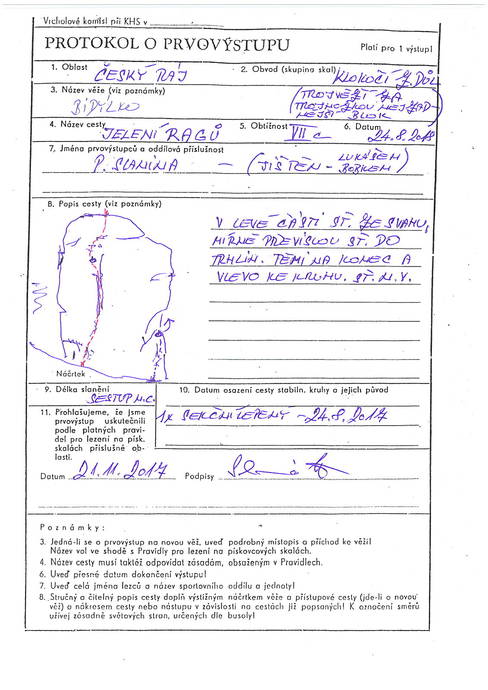 Vrcholové komisi při KHS v
PROTOKOL O PRVOVÝSTUPU Platí pro 1 výstup!
1. Oblast ČESKÝ RÁJ 2. Obvod (skupina skal) KLOKOČÍ Z. DŮL
3. Název věže (viz poznámky) BIDÝLKO
(TROJVĚŽÍ ZA
4. Název cesty JELENÍ RAGÚ 5. Obtížnost VII c 6. Datum 24.8.2018
7. Jména prvovýstupců a oddílová příslušnost
P. SLANINA — (JIŠTĚN - LUKÁŠEM
BORKEM)
8. Popis cesty (viz poznámky)
V LEVÉ ČÁSTI ST. ZE SVAHU,
MÍRNĚ PŘEVISLOU ST. DO
TRHLIN. TĚMI NA KONEC A
VLEVO KE KRUHU. ST. N. V.
Náčrtek
9. Délka slanění SESTUP N.C.
10. Datum osazení cesty stabiln. kruhy a jejich původ
1x SEKČNÍ LEPENÝ - 24.8.2017
11. Prohlašujeme, že jsme
prvovýstup uskutečnili
podle platných pravi-
del pro lezení na písk.
skalách příslušné ob-
lasti.
Datum 21.11.2017 Podpisy
Poznámky:
3. Jedná-li se o prvovýstup na novou věž, uveď podrobný místopis a příchod ke věži!
Název vol ve shodě s Pravidly pro lezení na pískovcových skalách.
4. Název cesty musí taktéž odpovídat zásadám, obsaženým v Pravidlech.
6. Uveď přesné datum dokončení výstupu!
7. Uveď celá jména lezců a název sportovního oddílu a jednoty!
8. Stručný a čitelný popis cesty doplň výstižným náčrtkem věže a přístupové cesty (jde-li o novou
věž) a nákresem cesty nebo nástupu v závislosti na cestách již popsaných! K označení směrů
užívej zásadně světových stran, určených dle busoly!